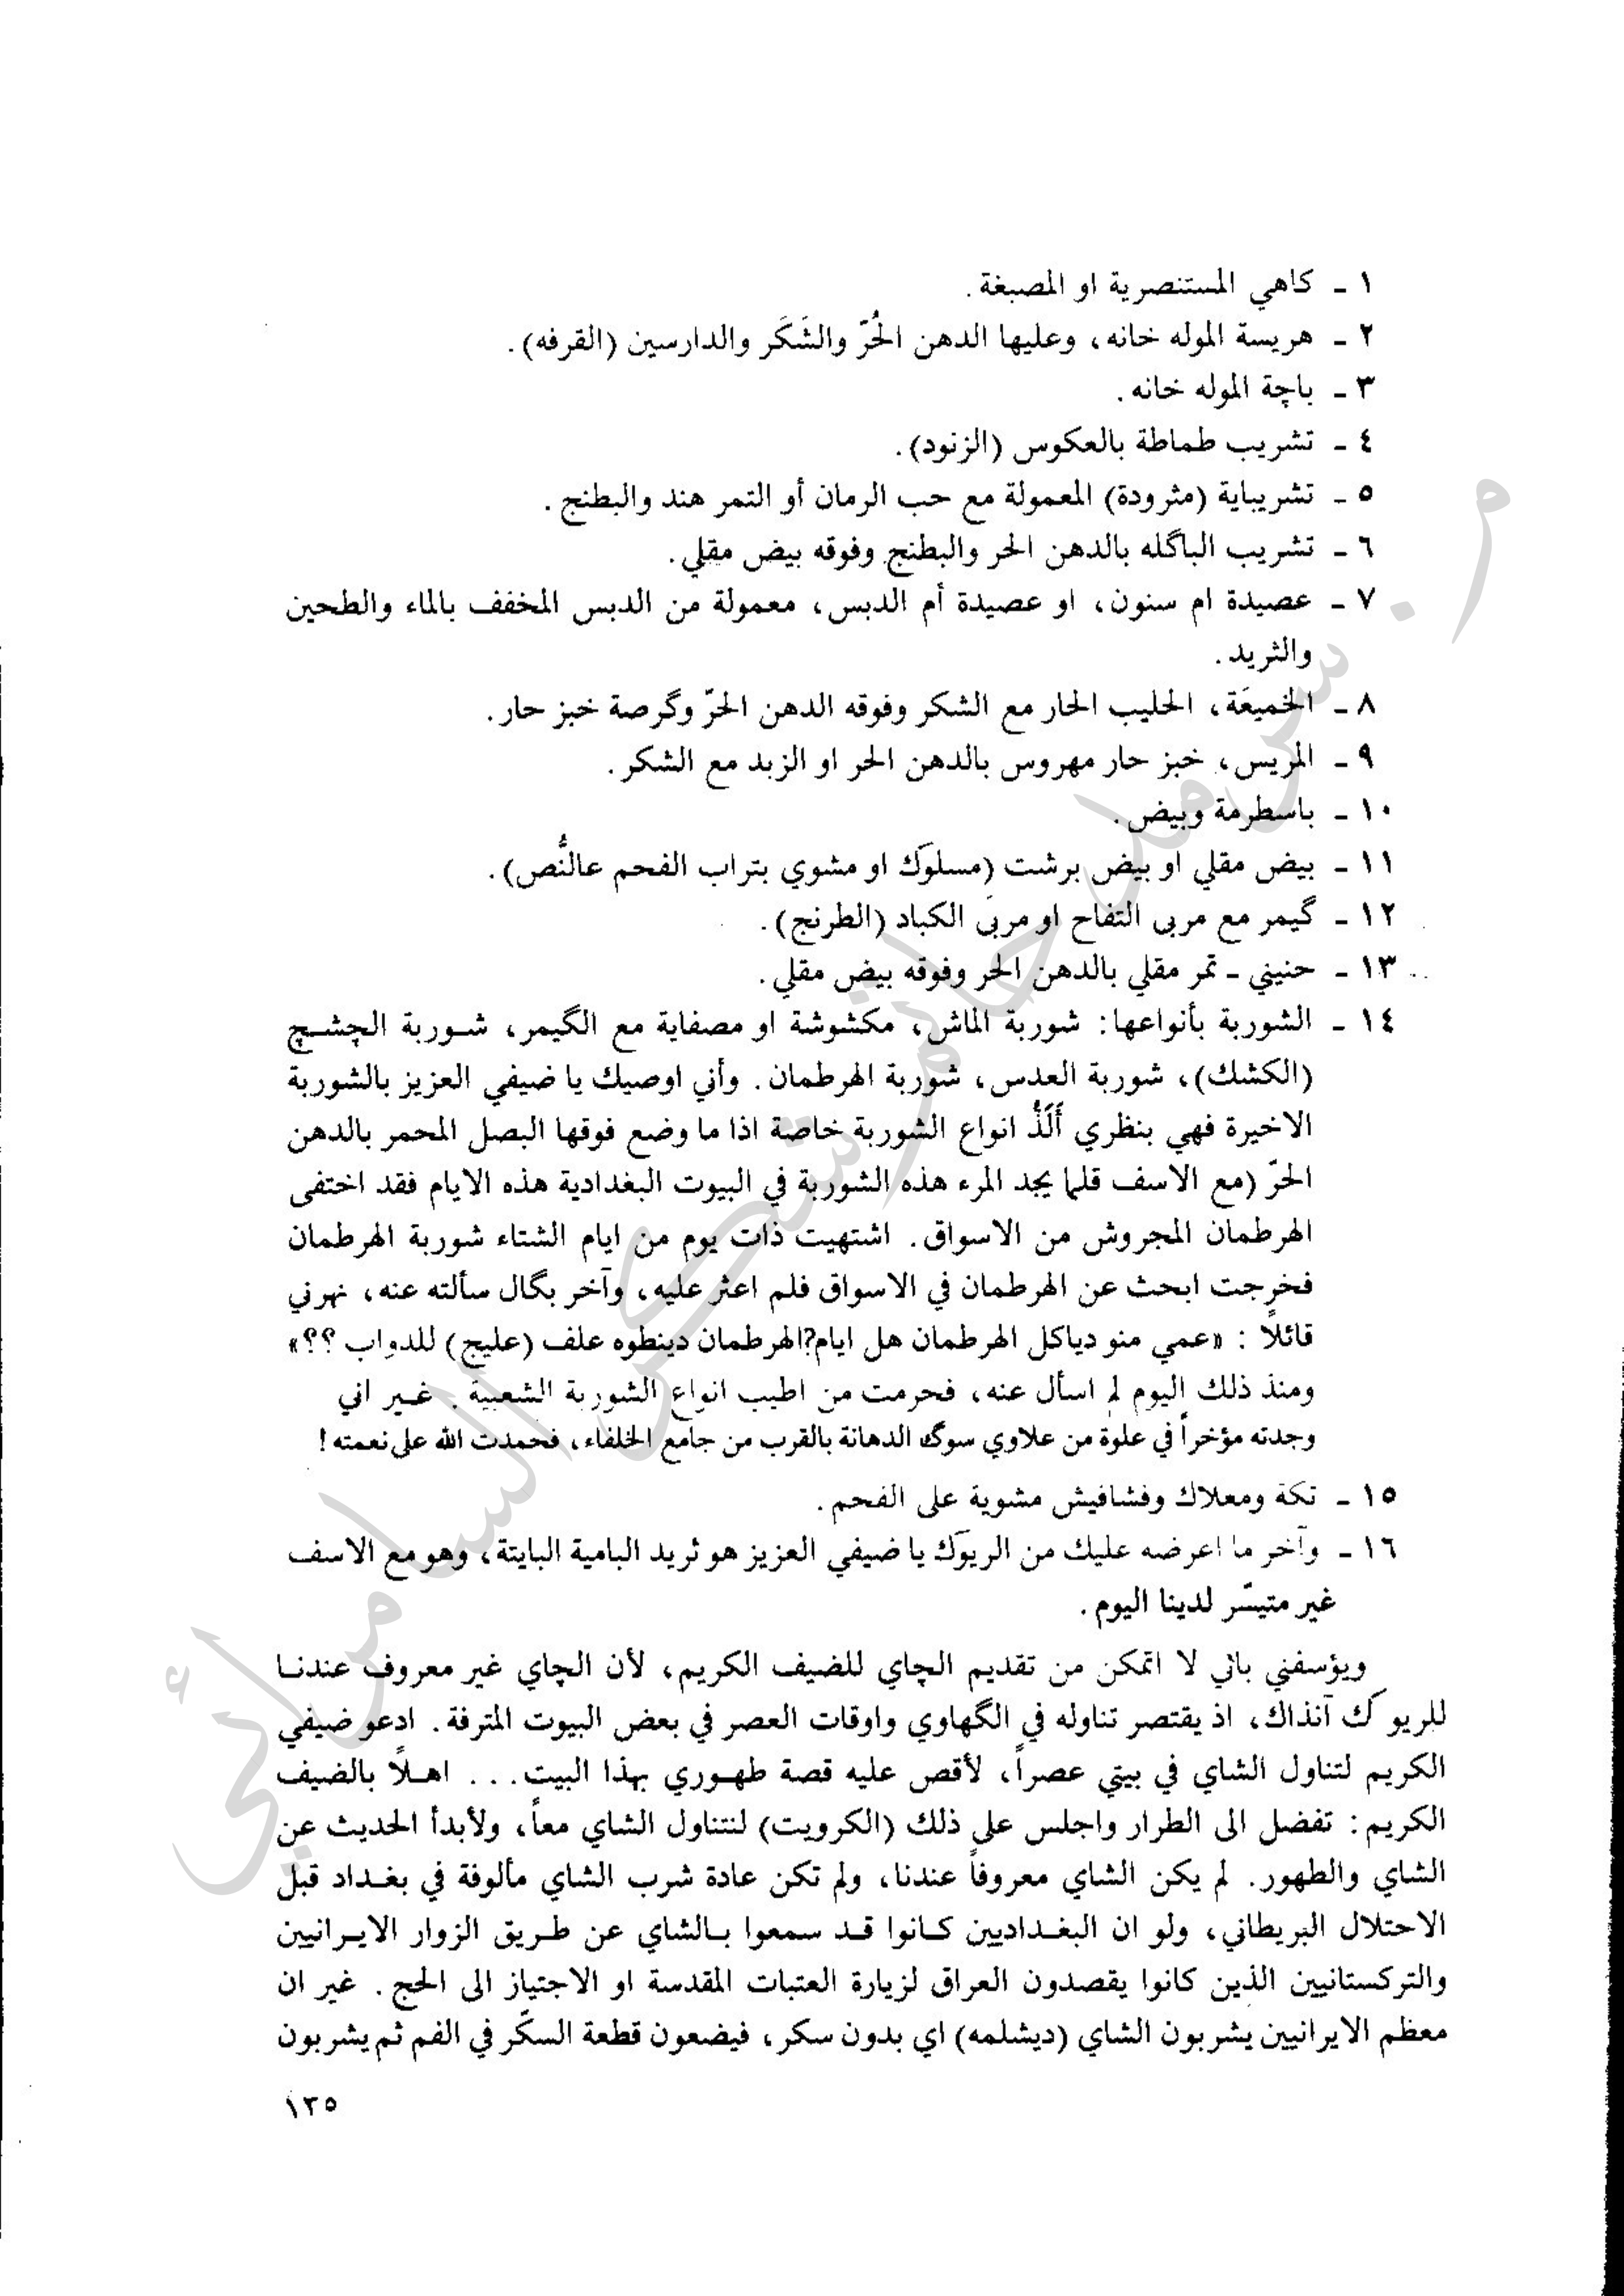 ١ - كاهي المستنصرية او المصبغة.
٢ - هريسة الموله خانه، وعليها الدهن الحُرّ والشَكَر والدارسين (القرفه).
٣ - باچة الموله خانه.
٤ - تشريب طماطة بالعكوس (الزنود).
٥ - تشريباية (مثرودة) المعمولة مع حب الرمان أو التمر هند والبطنج.
٦ - تشريب الباگله بالدهن الحر والبطنج وفوقه بيض مقلي.
٧ - عصيدة ام سنون، او عصيدة أم الدبس، معمولة من الدبس المخفف بالماء والطحين
والثريد.
٨ - الخميعَة، الحليب الحار مع الشكر وفوقه الدهن الحرّ وگرصة خبز حار.
٩ - المريس، خبز حار مهروس بالدهن الحر او الزبد مع الشكر.
١٠ - باسطرمة وبيض.
١١ - بيض مقلي او بيض برشت (مسلوگ او مشوي بتراب الفحم عالنُّص).
١٢ - گيمر مع مربى التفاح او مربى الكباد (الطرنج).
١٣ - حنيني - تمر مقلي بالدهن الحر وفوقه بيض مقلي.
١٤ - الشوربة بأنواعها: شوربة الماش، مكشوشة او مصفاية مع الگيمر، شوربة الچشچ
(الكشك)، شوربة العدس، شوربة الهرطمان. وأني اوصيك يا ضيفي العزيز بالشوربة
الاخيرة فهي بنظري أَلَذُّ انواع الشوربة خاصة اذا ما وضع فوقها البصل المحمر بالدهن
الحرّ (مع الاسف قلما يجد المرء هذه الشوربة في البيوت البغدادية هذه الايام فقد اختفى
الهرطمان المجروش من الاسواق. اشتهيت ذات يوم من ايام الشتاء شوربة الهرطمان
فخرجت ابحث عن الهرطمان في الاسواق فلم اعثر عليه، وآخر بگال سألته عنه، نهرني
قائلاً : «عمي منو دياكل الهرطمان هل ايام?الهرطمان دينطوه علف (عليج) للدواب ؟؟»
ومنذ ذلك اليوم لم اسأل عنه، فحرمت من اطيب انواع الشوربة الشعبية. غير اني
وجدته مؤخراً في علوة من علاوي سوگ الدهانة بالقرب من جامع الخلفاء، فحمدت الله على نعمته!
١٥ - تكة ومعلاك وفشافيش مشوية على الفحم.
١٦ - وآخر ما اعرضه عليك من الريوگ يا ضيفي العزيز هو ثريد البامية البايتة، وهو مع الاسف
غير متيسّر لدينا اليوم.
ويؤسفني باني لا اتمكن من تقديم الچاي للضيف الكريم، لأن الچاي غير معروف عندنا
للريوگ آنذاك، اذ يقتصر تناوله في الگهاوي واوقات العصر في بعض البيوت المترفة. ادعو ضيفي
الكريم لتناول الشاي في بيتي عصراً، لأقص عليه قصة طهوري بهذا البيت... اهلاً بالضيف
الكريم: تفضل الى الطرار واجلس على ذلك (الكرويت) لنتناول الشاي معاً، ولأبدأ الحديث عن
الشاي والطهور. لم يكن الشاي معروفاً عندنا، ولم تكن عادة شرب الشاي مألوفة في بغداد قبل
الاحتلال البريطاني، ولو ان البغداديين كانوا قد سمعوا بالشاي عن طريق الزوار الايرانيين
والتركستانيين الذين كانوا يقصدون العراق لزيارة العتبات المقدسة او الاجتياز الى الحج. غير ان
معظم الايرانيين يشربون الشاي (ديشلمه) اي بدون سكر، فيضعون قطعة السكّر في الفم ثم يشربون
١٢٥
م. سرمد حاتم شكر السامرائي